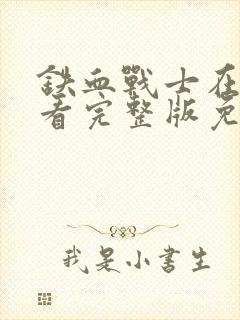 鐵血戰士在
看完整版免
我是小書生